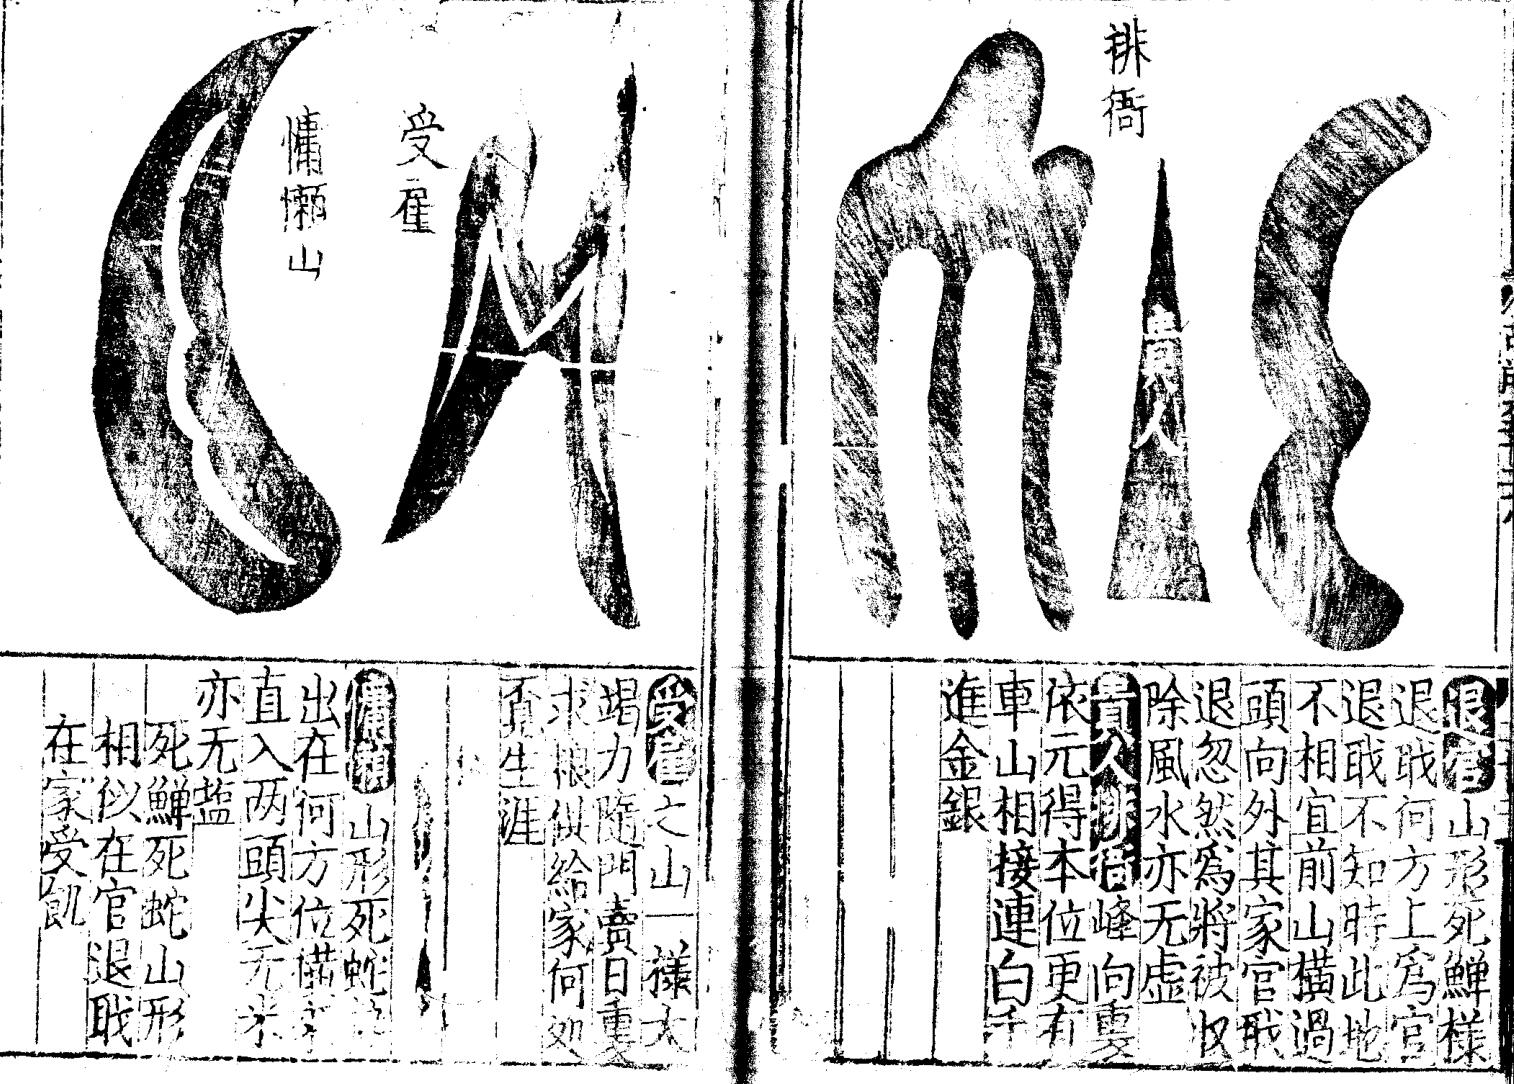 徘衙
貴人
退官山形死鱓樣
退戢何方上爲官
退戢不知時此地
不相宜前山橫過
頭向外其家官戢
退忽然爲將被収
除風水亦无虚
貴人徘衙峰向重
依元得本位更有
車山相接連白千
進金銀
受雇
慵懶山
受雇之山一樣大
竭力隨門賣日重
求粮似給家何処
頁生涯
慵懶山形死蛇
出在何方位
直入两頭尖无米
亦无塩
死鱓死蛇山形
相似在官退戢
在家受飢